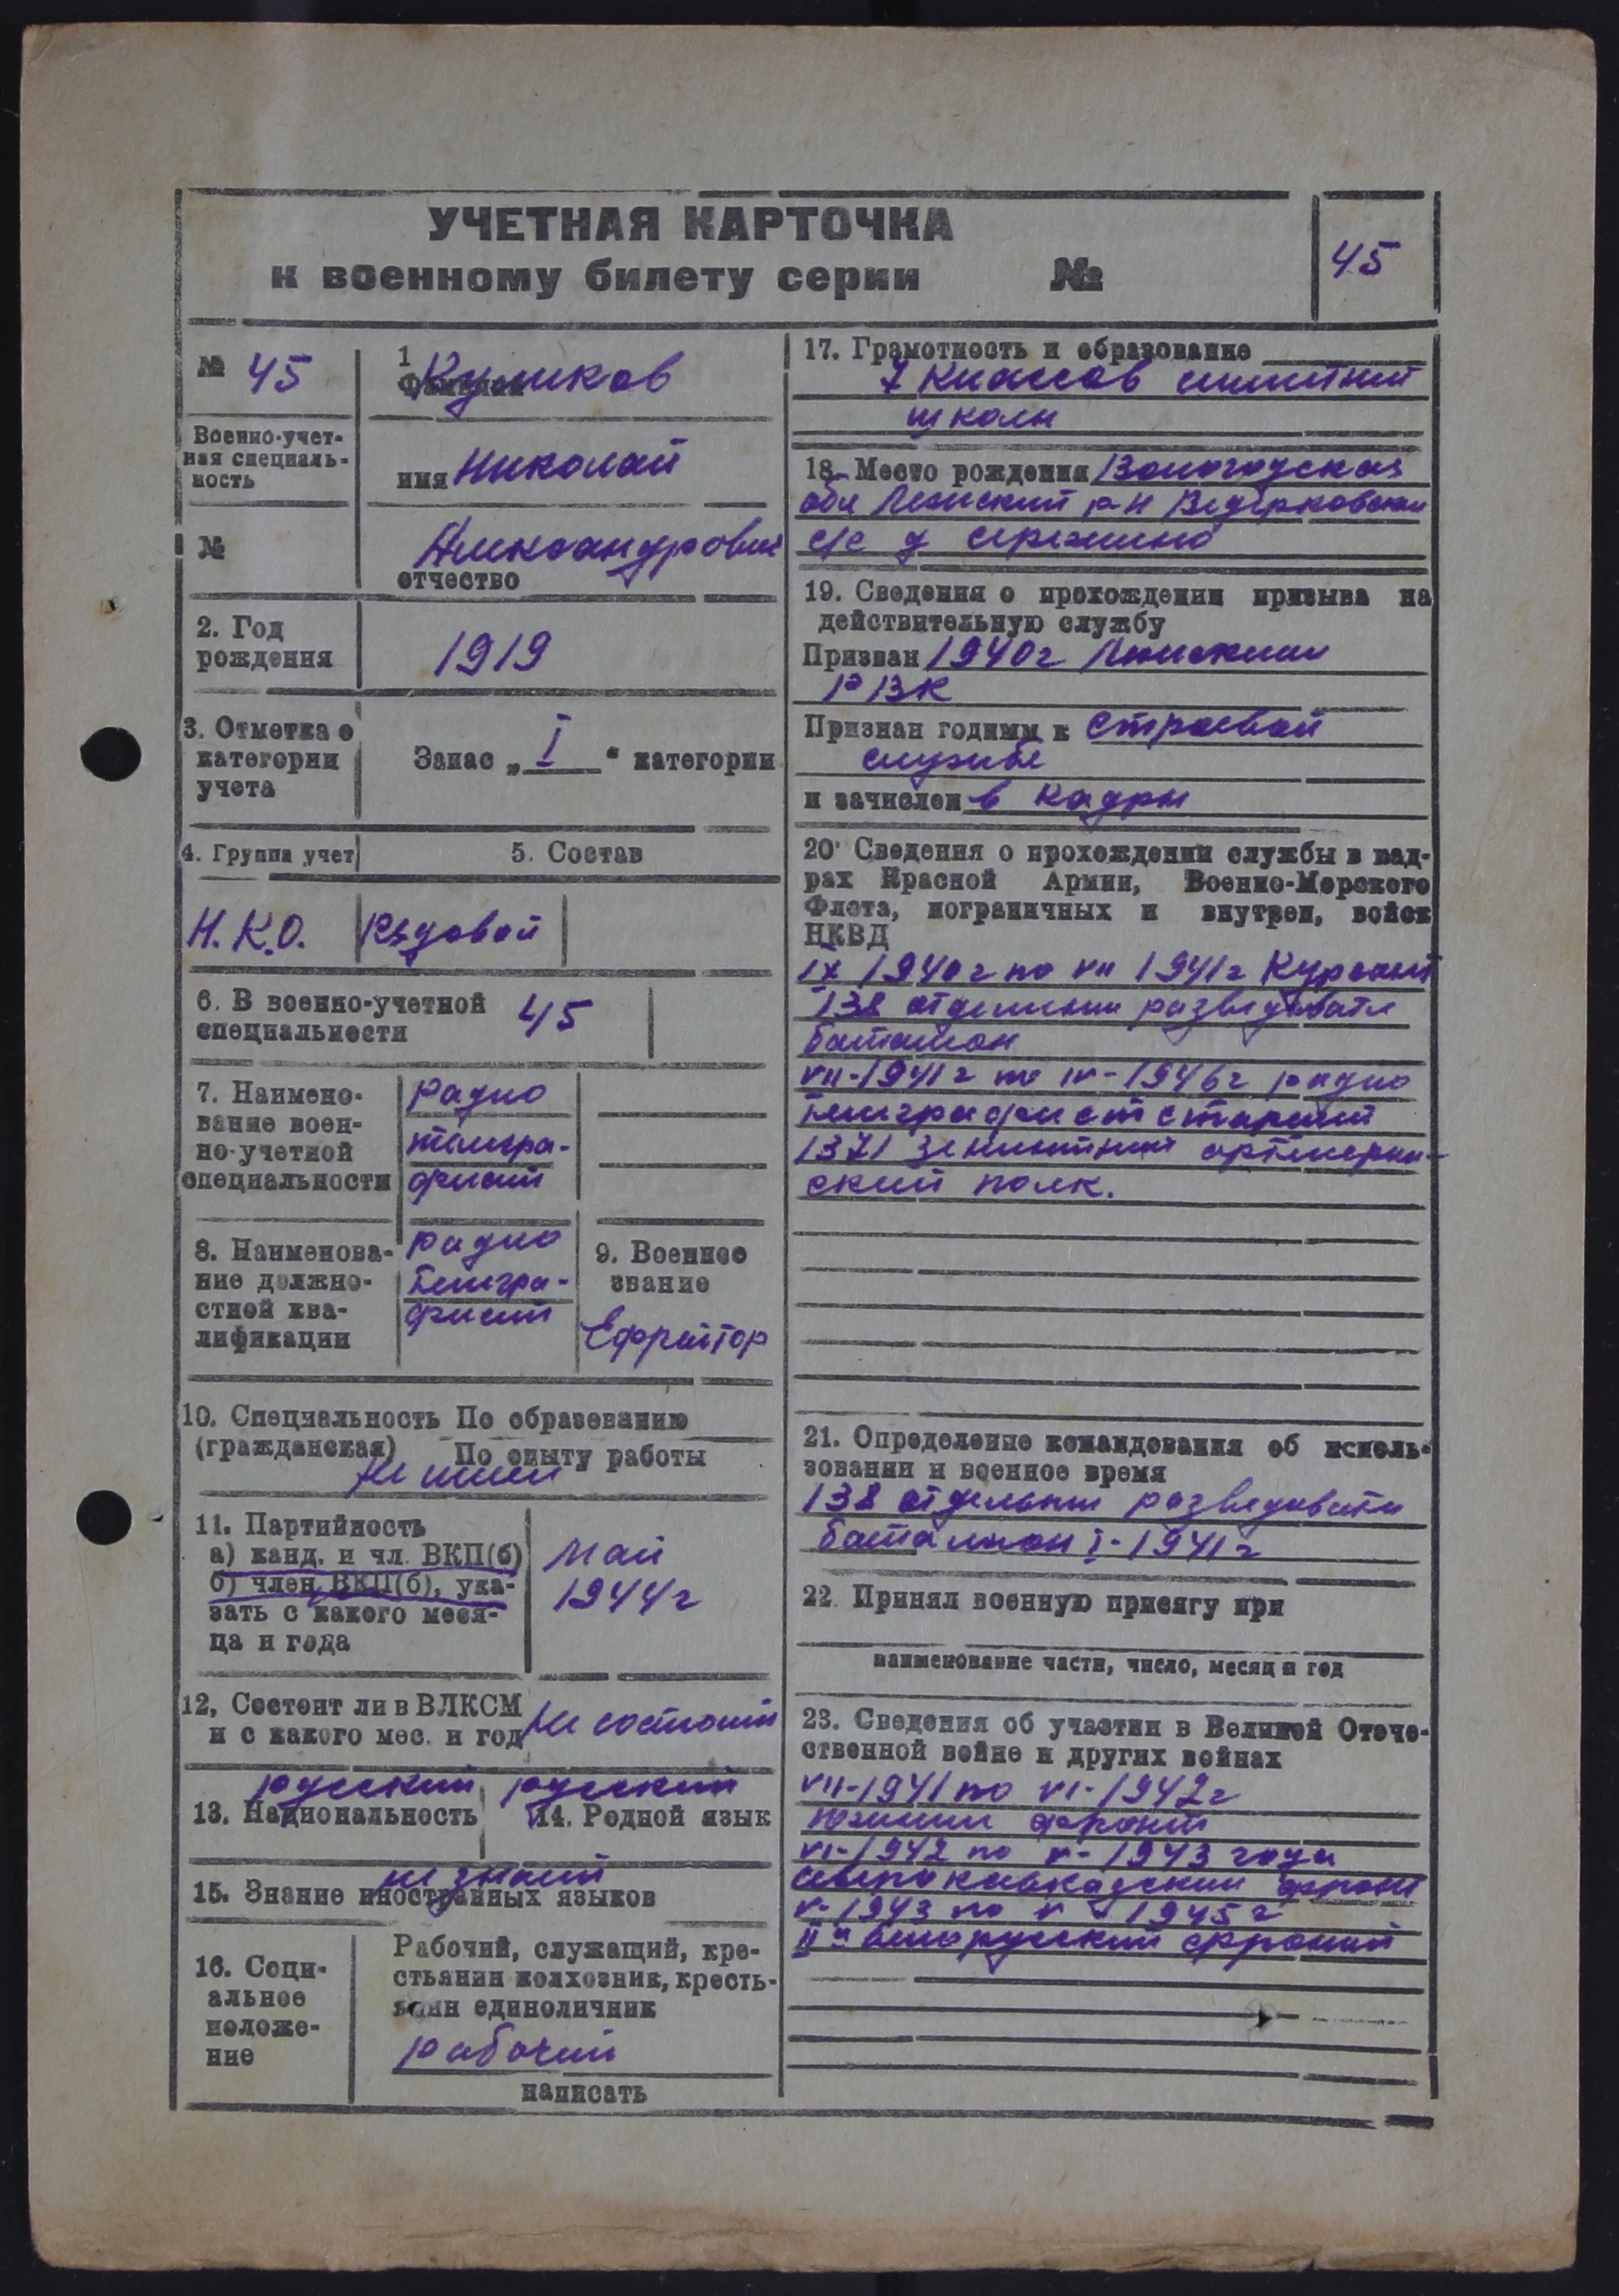 УЧЕТНАЯ КАРТОЧКА
к военному билету серии №
45
№ 45
1
Фамилия Куликов
Военно-учет-
ная специаль-
ность
имя Николай
№
Александрович
отчество
2. Год
рождения
1919
3. Отметка о
категории
учета
Запас „ I “ категории
4. Группа учет
5. Состав
Н.К.О.
Рядовой
6. В военно-учетной
специальности
45
7. Наимено-
вание воен-
но-учетной
специальности
Радио
телегра-
фист
8. Наименова-
ние должно-
стной ква-
лификации
Радио
телегра-
фист
9. Военное
звание
Ефрейтор
10. Специальность По образованию
(гражданская) По опыту работы
Не имеет
11. Партийность
а) канд. и чл. ВКП(б)
б) член ВКП(б), ука-
зать с какого меся-
ца и года
Май
1944г
12, Состоит ли в ВЛКСМ
и с какого мес. и год
Не состоит
русский русский
13. Национальность 14. Родной язык
не знает
15. Знание иностранных языков
16. Соци-
альное
положе-
ние
Рабочий, служащий, кре-
стьянин колхозник, кресть-
янин единоличник
рабочий
написать
17. Грамотность и образование
7 классов
школы
18. Место рождения Вологодская
обл р-н
с/с д
19. Сведения о прохождении призыва на
действительную службу
Призван 1940г
РВК
Признан годным к строевой
службе
и зачислен в кадры
20 Сведения о прохождении службы в кад-
рах Красной Армии, Военно-Морского
Флота, пограничных и внутрен, войск
НКВД
IX 1940г по VII 1941г Курсант
138 отдельный разведывате
батальон
VII-1941г по IV-1946г радио
телеграфист старший
1371 Зенитный артилерий-
ский полк.
21. Определение командования об исполь-
зовании и военное время
138 отдельный разведывате
батальон I-1941г
22. Принял военную присягу при
наименование части, число, месяц и год
23. Сведения об участии в Великой Отече-
ственной войне и других войнах
VII-1941 по VI-1942г
южный фронт
VI-1942 по V-1943 года
северокавкадский фронт
V-1943 по V 1945г
II й белорусский фронт